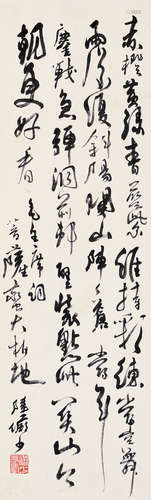 赤橙黄绿青蓝紫谁持彩练当空舞
雨后复斜阳关山阵阵苍当年
鏖战急弹洞前村壁装点此关山今
朝更好看毛主席词
菩萨蛮大柏地
陆俨少